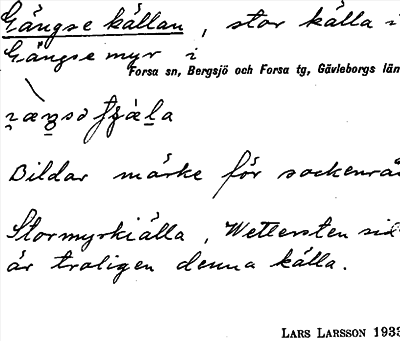 Gängse källan, stor källa i
Gängse myr i
Forsa sn, Bergsjö och Forsa tg, Gävleborgs län
Bildar märke för sockenrå
Stormyrkiälla, Wettersten sid
är troligen denna källa.
LARS LARSSON 1933